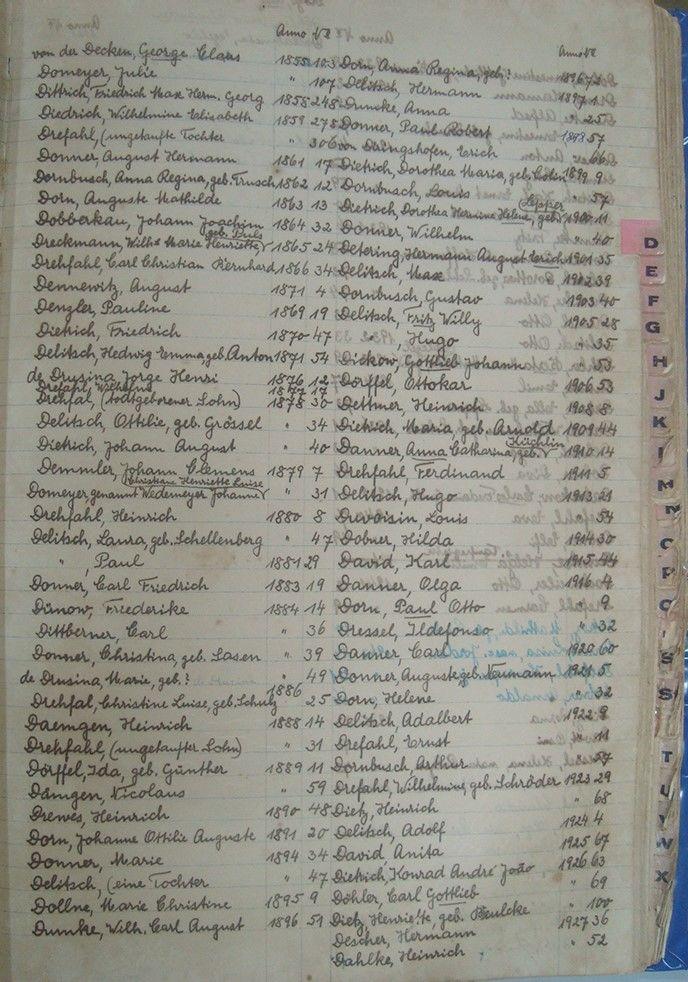 Anno No
von der Decken, George Claus 1855 103
Domeyer, Julie " 107
Dittrich, Friedrich Max Herm. Georg 1858 248
Diedrich, Wilhelmine Elisabeth 1859 278
Drefahl, (ungetaufte Tochter " 306
Donner, August Hermann 1861 17
Dornbusch, Anna Regina, geb. Trusch 1862 12
Dorn, Auguste Mathilde 1863 13
Dobberkau, Johann Joachim 1864 32
Dreckmann, Wilh. Marie Henriette, geb. Puls 1865 24
Drehfahl, Carl Christian Bernhard 1866 34
Dennewitz, August 1871 4
Dengler, Pauline 1869 19
Dietrich, Friedrich 1870 47
Delitsch, Hedwig Emma, geb. Anton 1871 54
de Drusina, Jorge Henri 1876 12
Drefahl, Wilhelmine 1877 17
Drehfal, (todtgeborener Sohn) 1878 30
Delitsch, Ottilie, geb. Grössel " 34
Dietrich, Johann August " 40
Demmler, Johann Clemens 1879 7
Domeyer, genannt Wedemeyer Johanne Christiane Henriette Luise " 31
Drehfahl, Heinrich 1880 8
Delitsch, Laura, geb. Schellenberg " 47
" , Paul 1881 29
Donner, Carl Friedrich 1883 19
Dümow, Friederike 1884 14
Dittberner, Carl " 36
Donner, Christina, geb. Lasen " 39
de Drusina, Marie, geb. ? " 49
Drehfal, Christine Luise, geb. Schulz 1886 25
Daemgen, Heinrich 1888 14
Drehfahl, (ungetaufter Sohn) " 31
Dörffel, Ida, geb. Günther 1889 11
Dämgen, Nicolaus " 59
Drewes, Heinrich 1890 48
Dorn, Johanne Ottilie Auguste 1891 20
Donner, Marie 1894 34
Delitsch, (eine Tochter " 47
Dollne, Marie Christine 1895 9
Dumke, Wilh. Carl August 1896 51
Anno No
Dorn, Anna Regina, geb. ? 1896
Delitsch, Hermann 1897
Dumke, Anna " 25
Donner, Paul Robert 1898 57
von Döringshofen, Erich " 66
Dietrich, Dorothea Maria, geb. 1899 9
Dornbusch, Louis " 57
Dietrich, Dorothea Hermine Helene, geb. Lepper 1900 11
Donner, Wilhelm " 40
Detering, Hermann August Erich 1901 35
Delitsch, Max 1902 39
Dornbusch, Gustav 1903 40
Delitsch, Fritz Willy 1905 28
" , Hugo " 35
Diekow, Gottlieb Johann " 53
Dörffel, Ottokar 1906 53
Dettmer, Heinrich 1908 8
Dietrich, Maria, geb. Arnold 1909 44
Danner, Anna Catharina, geb. Küchlin 1910 14
Drehfahl, Ferdinand 1911 5
Delitsch, Hugo 1913 21
Duvoisin, Louis " 54
Dobner, Hilda 1914 30
David, Karl 1915 44
Danner, Olga 1916 4
Dorn, Paul Otto " 9
Dressel, Ildefonso " 32
Danner, Carl 1920 60
Donner, Auguste, geb. Naumann 1921 5
Dorn, Helene " 32
Delitsch, Adalbert 1922 9
Drefahl, Ernst " 11
Dornbusch, Arthur
Drefahl, Wilhelmine, geb. Schröder 1923 29
Dietz, Heinrich " 68
Delitsch, Adolf 1924 4
David, Anita 1925 67
Dietrich, Konrad André João 1926 63
Döhler, Carl Gottlieb " 69
Dietz, Henriette, geb. Beulcke " 100
Descher, Hermann 1927 36
Dahlke, Heinrich " 52
D
E
F
G
H
J
K
L
M
N
O
P
Q
S
S
T
U
V
W
X